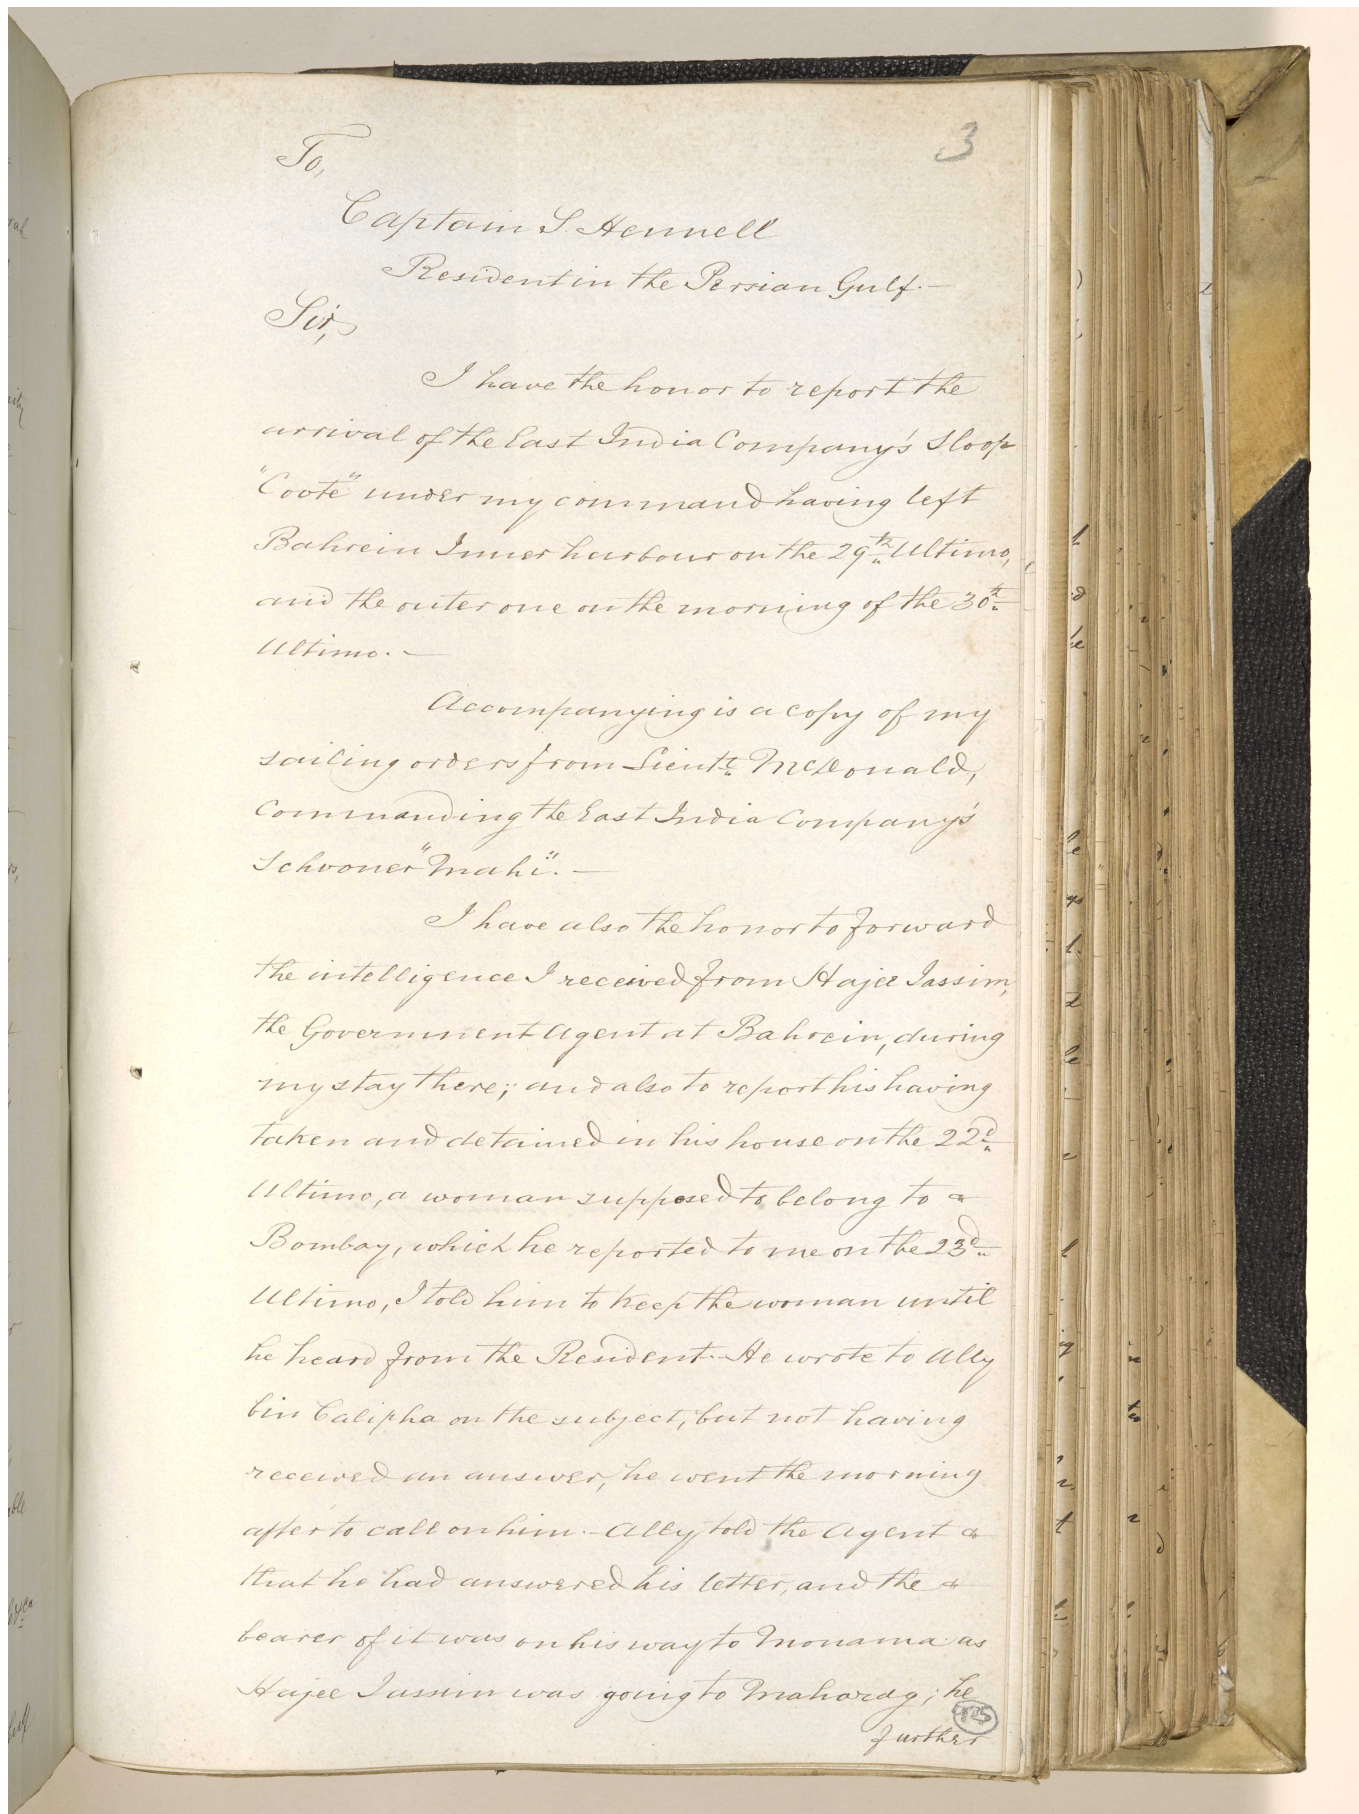 3
To,
Captain S. Hennell
Resident in the Persian Gulf.—
Sir,
I have the honor to report the
arrival of the East India Company's Sloop
"Coote" under my command having left
Bahrein Inner harbour on the 29th Ultimo,
and the outer one on the morning of the 30th
Ultimo.—
Accompanying is a copy of my
sailing orders from Lieutt McDonald,
Commanding the East India Company's
Schooner "Mahi".—
I have also the honor to forward
the intelligence I received from Hajee Jassim,
the Government Agent at Bahrein, during
my stay there; and also to report his having
taken and detained in his house on the 22d
Ultimo, a woman supposed to belong to
Bombay, which he reported to me on the 23d
Ultimo, I told him to keep the woman until
he heard from the Resident. He wrote to Ally
bin Calipha on the subject, but not having
received an answer, he went the morning
after to call on him.—Ally told the Agent
that he had answered his letter, and the
bearer of it was on his way to Monama as
Hajee Jassim was going to Maharag; he
further